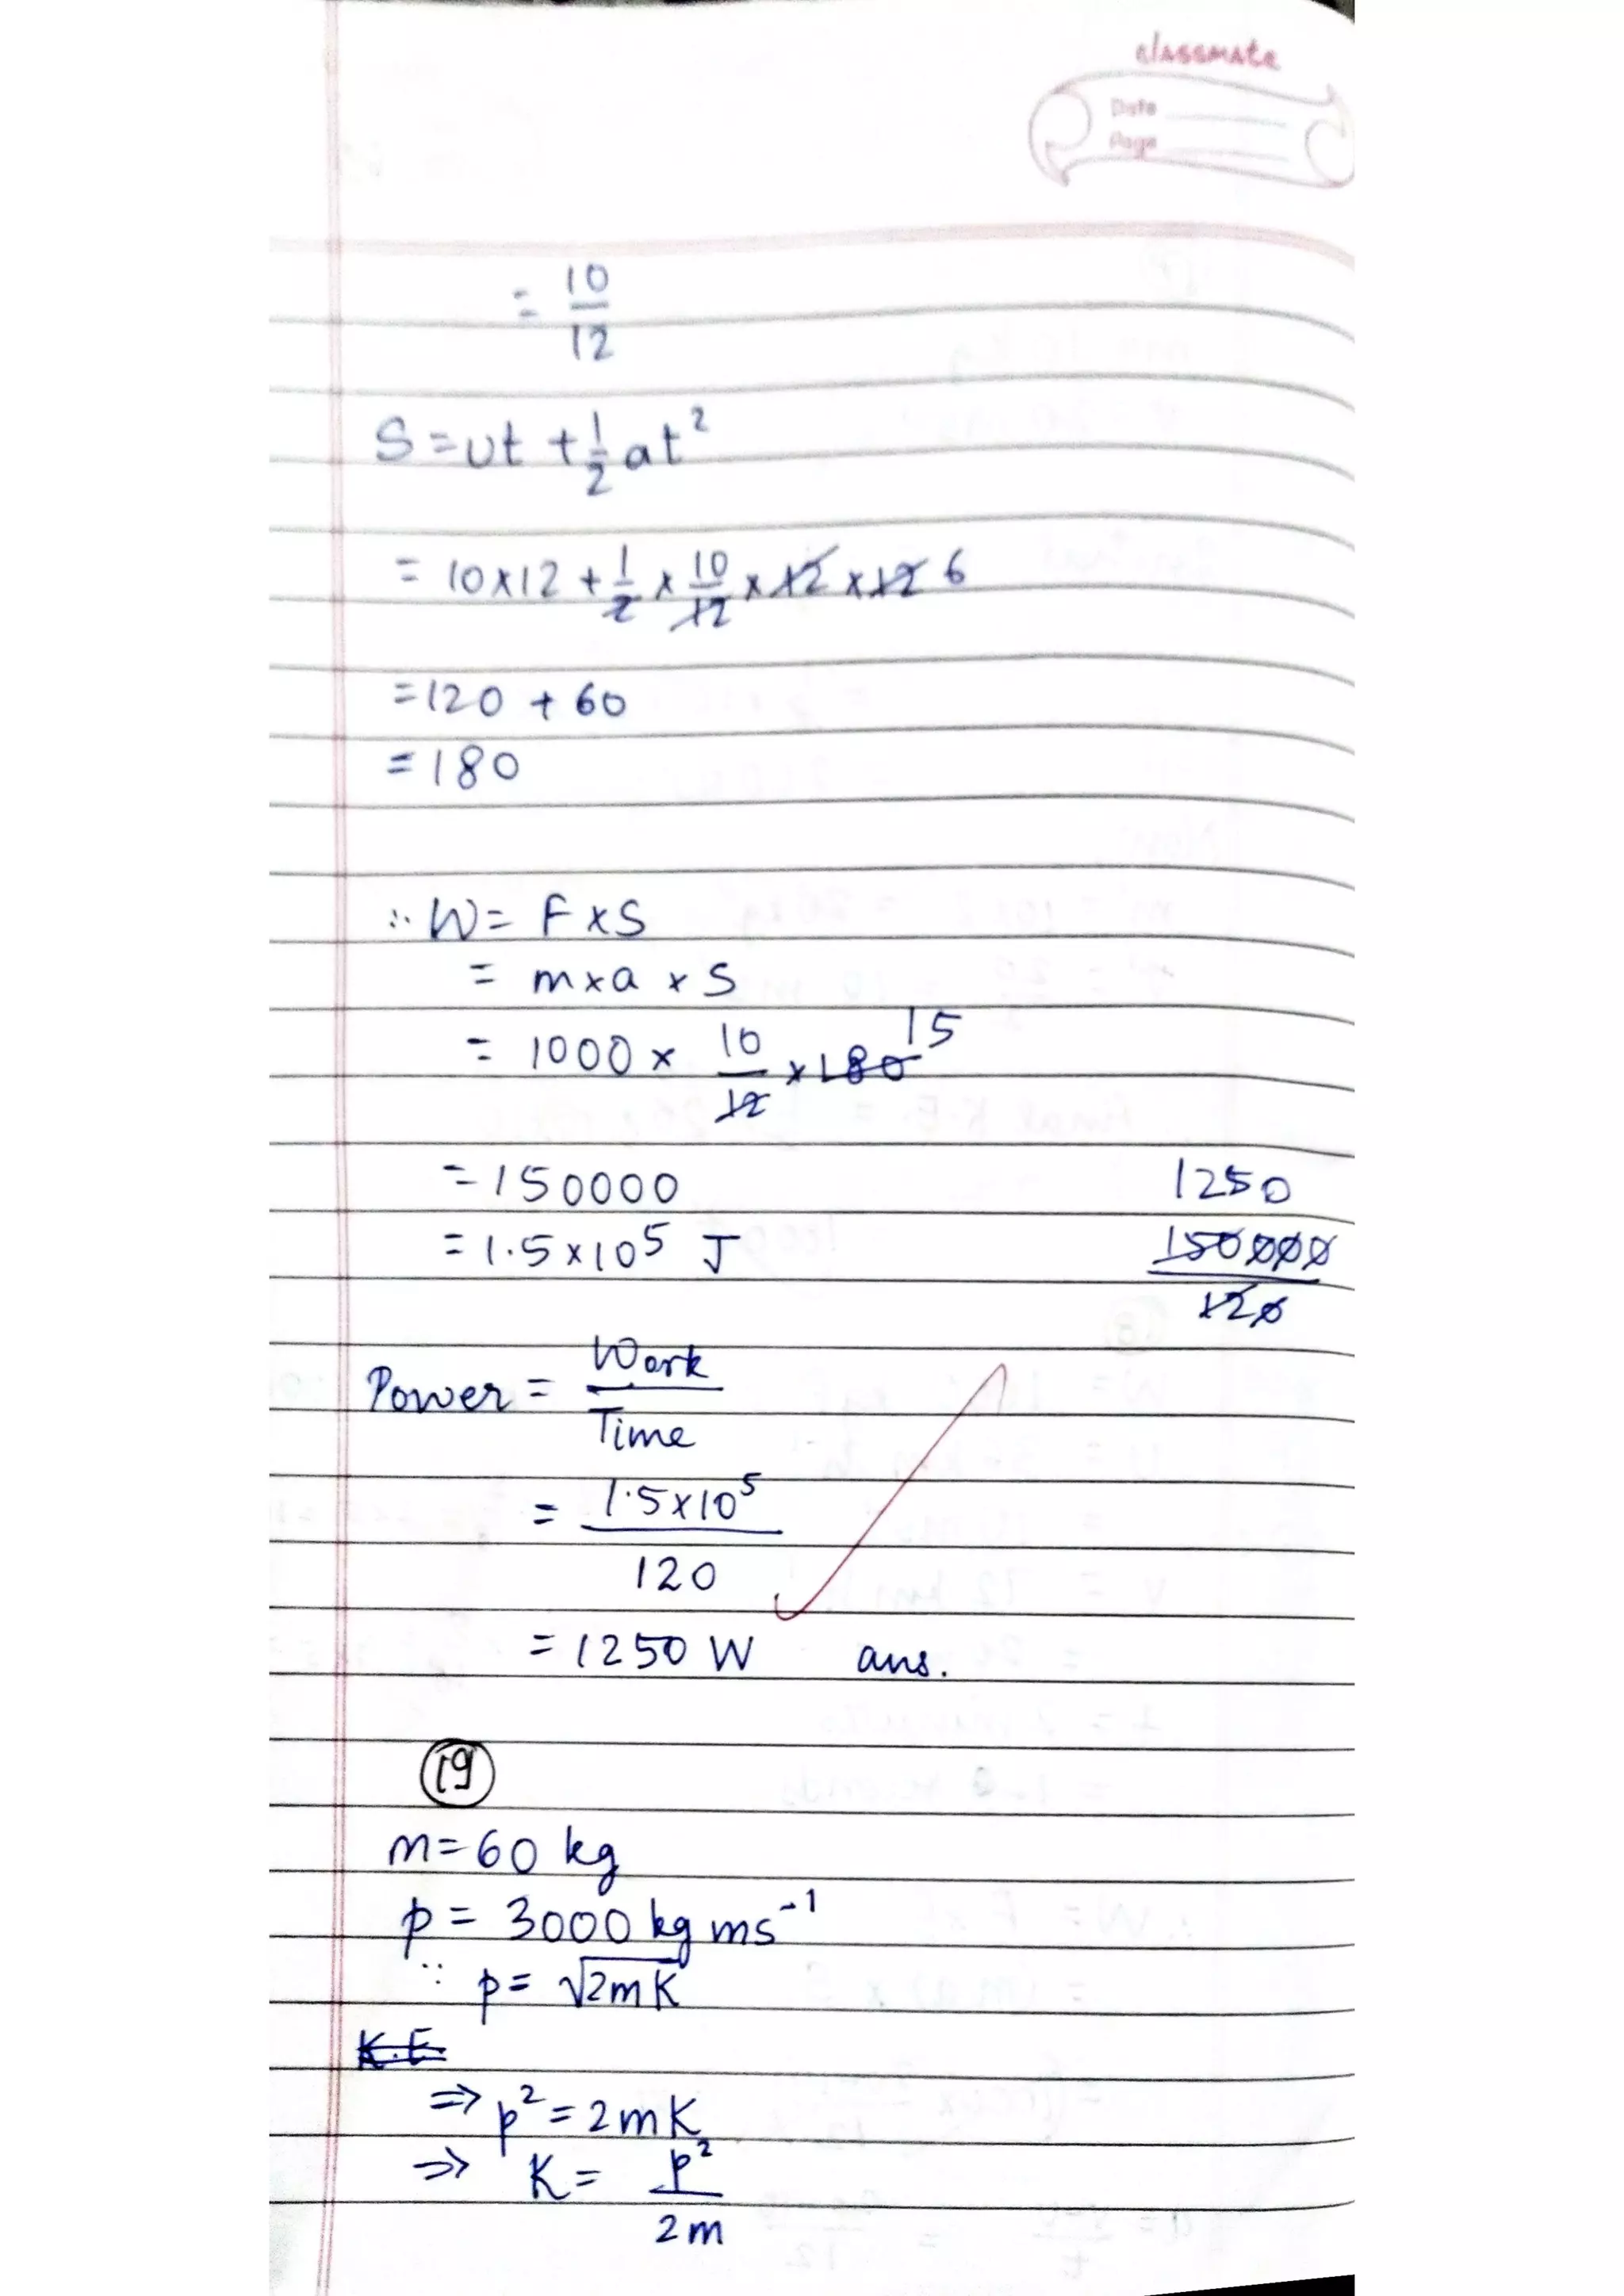 classmate
Date
Page
= 10/12
S = ut + 1/2 at²
= 10 × 12 + 1/2 × 10/12 × 12 × 12 6
= 120 + 60
= 180
∴ W = F × S
= m × a × S
= 1000 × 10/12 × 180 15
= 150000
1250
= 1.5 × 10⁵ J
150000/120
Power = Work/Time
= 1.5 × 10⁵/120
= 1250 W ans.
19
m = 60 kg
p = 3000 kg ms⁻¹
∵ p = √2mK
K.E.
⇒ p² = 2mK
⇒ K = p²/2m